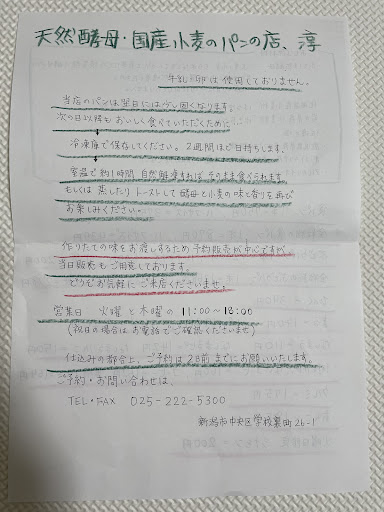 天然酵母・国産小麦のパンの店、淳
牛乳・卵は使用しておりません。
当店のパンは翌日には少し固くなります。
次の日以降もおいしく食べていただくために
冷凍庫で保存してください。2週間ほど日持ちします。
室温で約1時間自然解凍すれば、そのまま食べられます。
もしくは蒸したりトーストして酵母と小麦の味と香りを再び
お楽しみください。
作りたての味をお渡しするため予約販売が中心ですが、
当日販売もご用意しております。
どうぞお気軽にご来店くださいませ。
営業日 火曜と木曜の11:00〜18:00
(祝日の場合はお電話でご確認くださいませ)
仕込みの都合上、ご予約は2日前までにお願いいたします。
ご予約・お問い合わせは、
TEL・FAX 025-222-5300
新潟市中央区学校裏町26-1